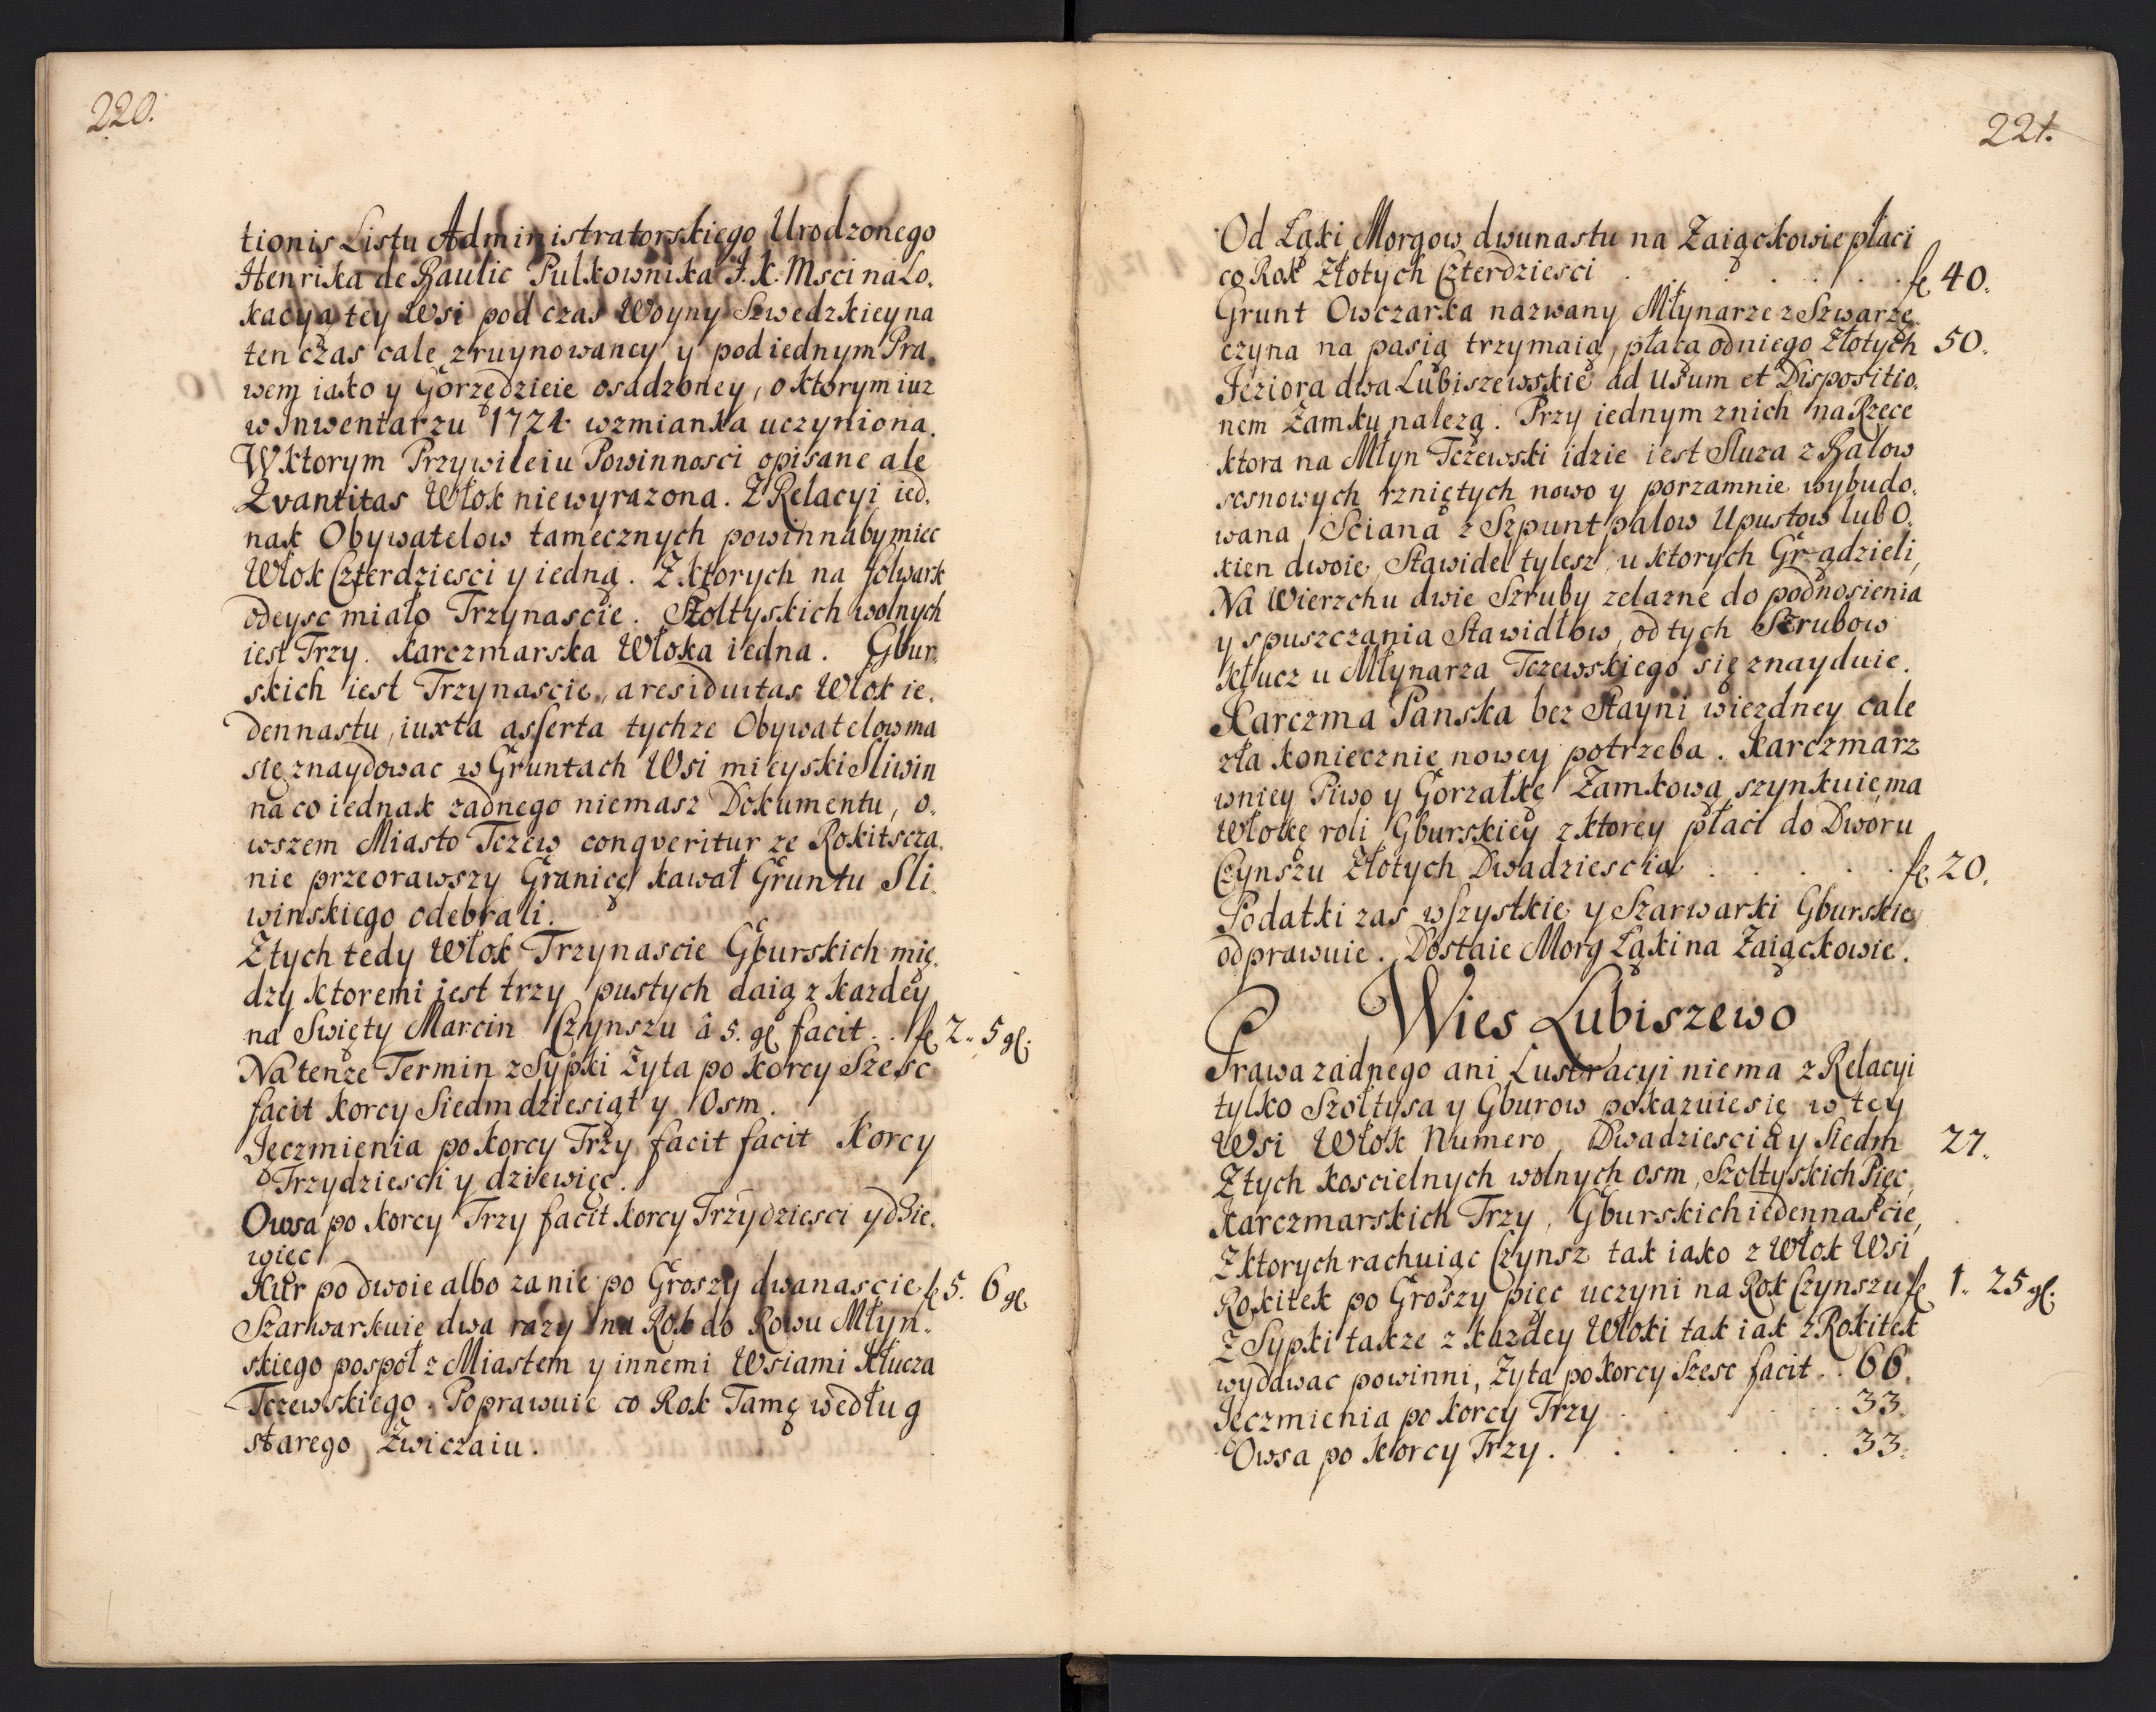 220.
tionis Listu Administratorskiego Urodzonego
Henrika de Baulic Pulkownika J. K. Msci na Lo„
kacyą tey Wsi pod czas Woyny Szwedzkiey na
ten czas cale zruynowaney y pod iednym Pra„
wem iako y Gorzędzieie osadzoney, o ktorym iuz
w Inwentarzu 1724 wzmianka uczyniona.
W ktorym Przywileiu Powinnosci opisane ale
Qvantitas Włok niewyrazona. Z Relacyi ied„
nak Obywatelow tamecznych powinnaby miec
Włok Czterdziesci y iedną. Z ktorych na folwark
odeysc miało Trzynascie. Szołtyskich wolnych
iest Trzy. Karczmarska Włoka iedna. Gbur„
skich iest Trzynascie, a residuitas Włok ie„
dennastu, iuxta asserta tychze Obywatelow ma
się znaydowac w Gruntach Wsi mieyski Sliwin
na co iednak zadnego niemasz Dokumentu, o„
wszem Miasto Tczew conqveritur ze Rokitscza„
nie przeorawszy Granicę kawał Gruntu Sli„
winskiego odebrali.
Z tych tedy Włok Trzynascie Gburskich mię„
dzy ktoremi iest trzy pustych daią z kazdey
na Swięty Marcin Czynszu â 5. gl facit .. fl. 2„ 5 gl.
Na tenze Termin z Sypki Zyta po korcy Szesc
facit korcy Siedmdziesiąt y Osm.
Jęczmienia po korcy Trzy facit facit Korcy
Trzydziesci y dziewięc.
Owsa po korcy Trzy facit korcy Trzydziesci y dzie„
więc
Kur po dwoie albo za nie po Groszy dwanascie fl 5. 6 gl.
Szarwarkuie dwa razy na Rok do Rowu Młyn„
skiego pospoł z Miastem y innemi Wsiami Klucza
Tczewskiego. Poprawuie co Rok Tamę według
starego Zwiczaiu.
221.
Od Łąki Morgow dwunastu na Zaiączkowie płaci
co Rok Złotych Czterdziesci . . . . . . fl. 40.
Grunt Owczarka nazwany Młynarze z Szwarze„
czyna na pasią trzymaią, płacą od niego Złotych 50.
Jeziora dwa Lubiszewskie ad Usum et Dispositio„
nem Zamku nalezą. Przy iednym z nich na Rzece
ktora na Młyn Tczewski idzie iest Sluza z Balow
sosnowych rzniętych nowo y porzamnie wybudo„
wana, Sciana z Szpunt palow Upustow lub O„
kien dwoie, Stawideł tylesz, u ktorych Grądzieli,
Na Wierzchu dwie Szruby zelazne do podnosienia
y spuszczania Stawidłow, od tych Szrubow
Klucz u Młynarza Tczewskiego się znayduie.
Karczma Panska bez Stayni wiezdney cale
zła koniecznie nowey potrzeba. Karczmarz
w niey Piwo y Gorzałkę Zamkową szynkuie, ma
Włokę roli Gburskiey z ktorey płaci do Dworu
Czynszu Złotych Dwadziescia . . . . . fl. 20.
Podatki zas wszystkie y Szarwarki Gburskie
odprawuie. Dostaie Morg Łąki na Zaiączkowie.
Wies Lubiszewo
Prawa zadnego ani Lustracyi niema z Relacyi
tylko Szołtysa y Gburow pokazuie się w tey
Wsi Włok Numero Dwadziescia y Siedm 27.
Z tych koscielnych wolnych osm, Szołtyskich Pięc,
Karczmarskich Trzy, Gburskich iedennascie,
Z ktorych rachuiąc Czynsz tak iako z Włok Wsi
Rokitek po Groszy pięc uczyni na Rok Czynszu fl. 1„ 25 gl.
Z Sypki takze z kazdey Włoki tak iak z Rokitek
wydawac powinni, Zyta po korcy Szesc facit .. 66.
Jęczmienia po korcy Trzy . . . . . 33.
Owsa po Korcy Trzy . . . . . . 33.